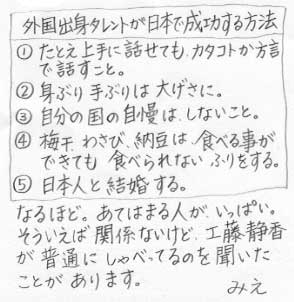 外国出身タレントが日本で成功する方法
① たとえ上手に話せても、カタコトか方言
で話すこと。
② 身ぶり手ぶりは大げさに。
③ 自分の国の自慢は、しないこと。
④ 梅干、わさび、納豆は、食べる事が
できても 食べられない ふりをする。
⑤ 日本人と結婚する。
なるほど。あてはまる人が、いっぱい。
そういえば 関係ないけど、工藤静香
が 普通に しゃべってるのを聞いた
ことが あります。
みえ